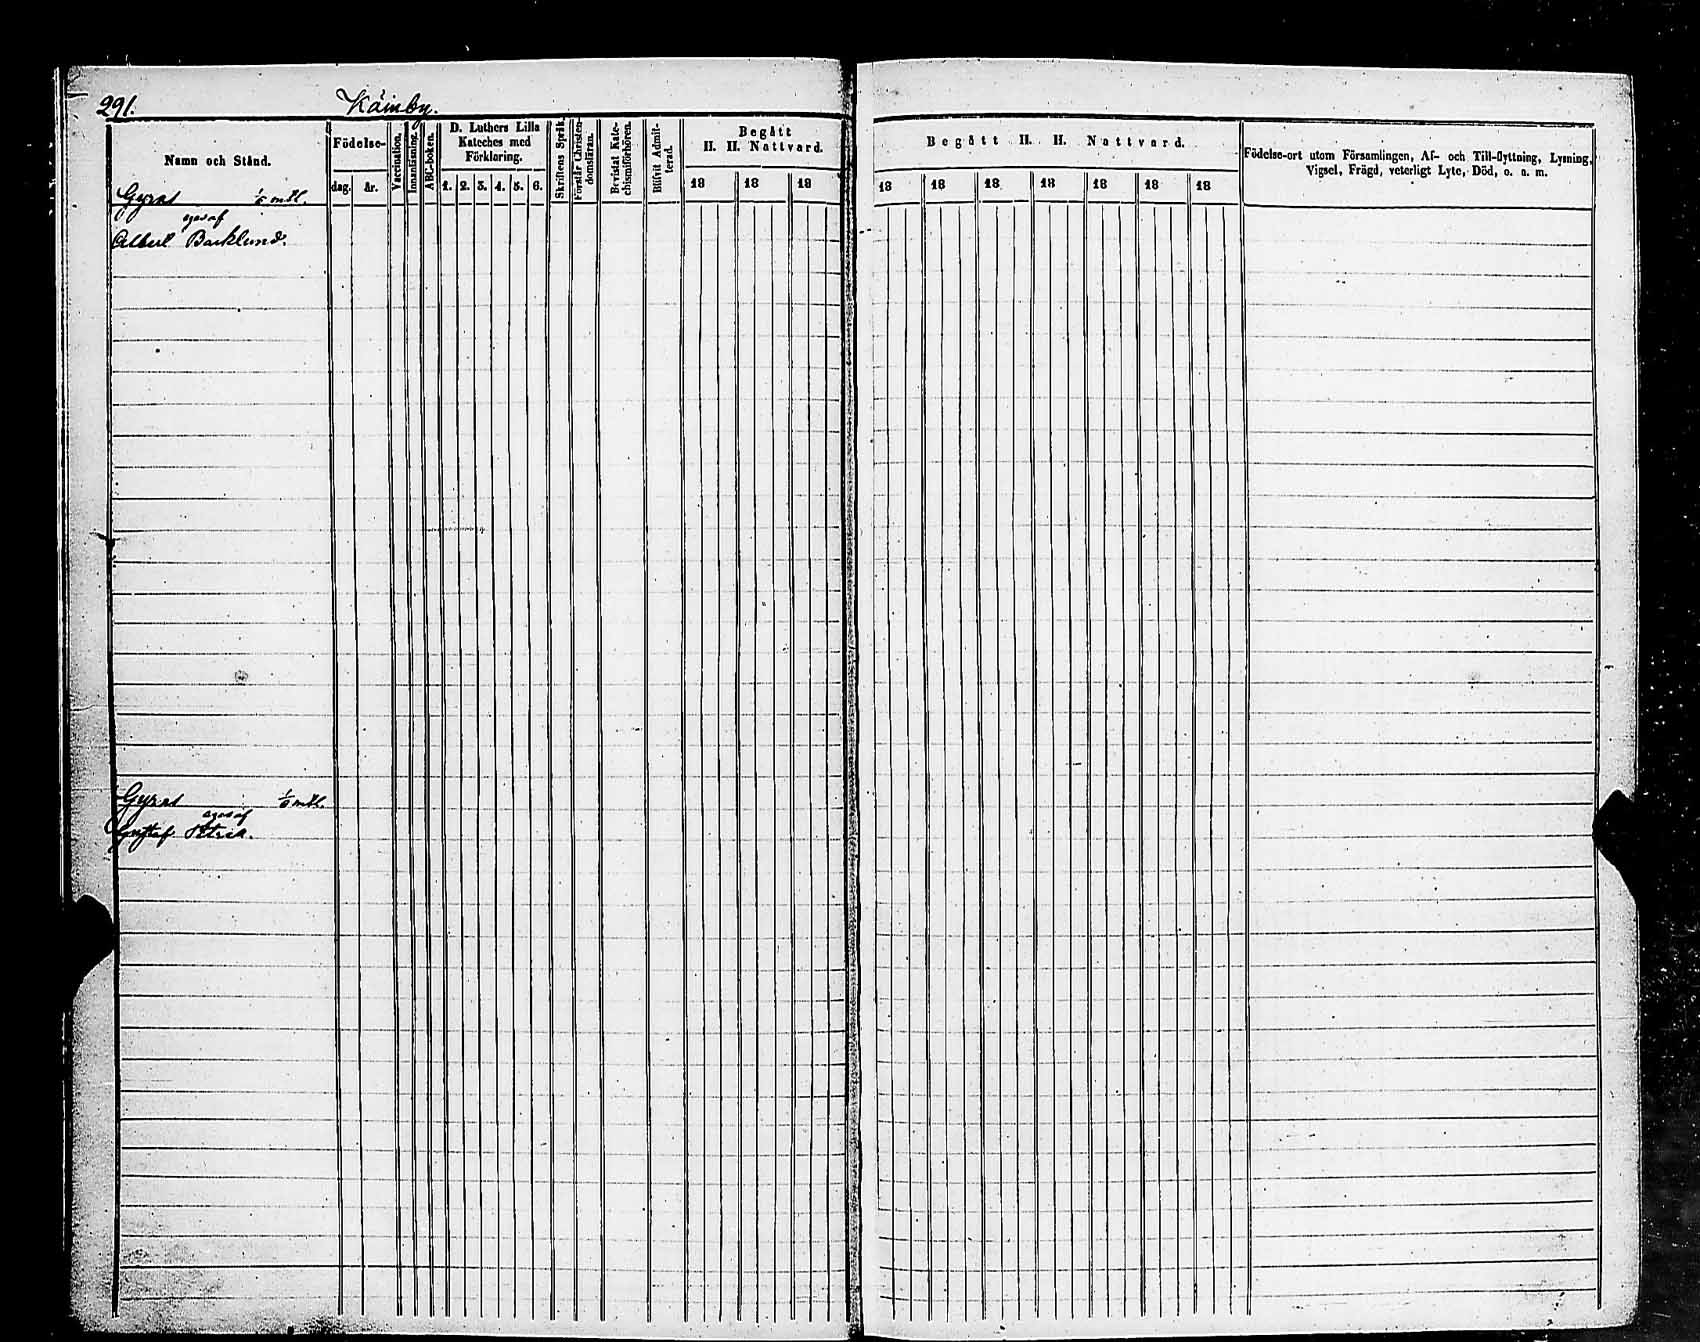 291. Käinby.
Namn och Stånd.
Födelse-
dag. år.
Vaccination.
Innanläsning.
ABC-boken.
D. Luthers Lilla
Kateches med
Förklaring.
1. 2. 3. 4. 5. 6.
Skriftens Språk.
Förstår Christen-
domsläran.
Bevistat Kate-
chismiförhören.
Blifvit Admit-
terad.
Begått
H. H. Nattvard.
18 18 18
Begått H. H. Nattvard.
18 18 18 18 18 18 18
Födelse-ort utom Församlingen, Af- och Till-flyttning, Lysning,
Vigsel, Frägd, veterligt Lyte, Död, o. s. m.
Gyras mtl.
eges af
Albert Barklund.
Gyras mtl.
eges af
Gustaf